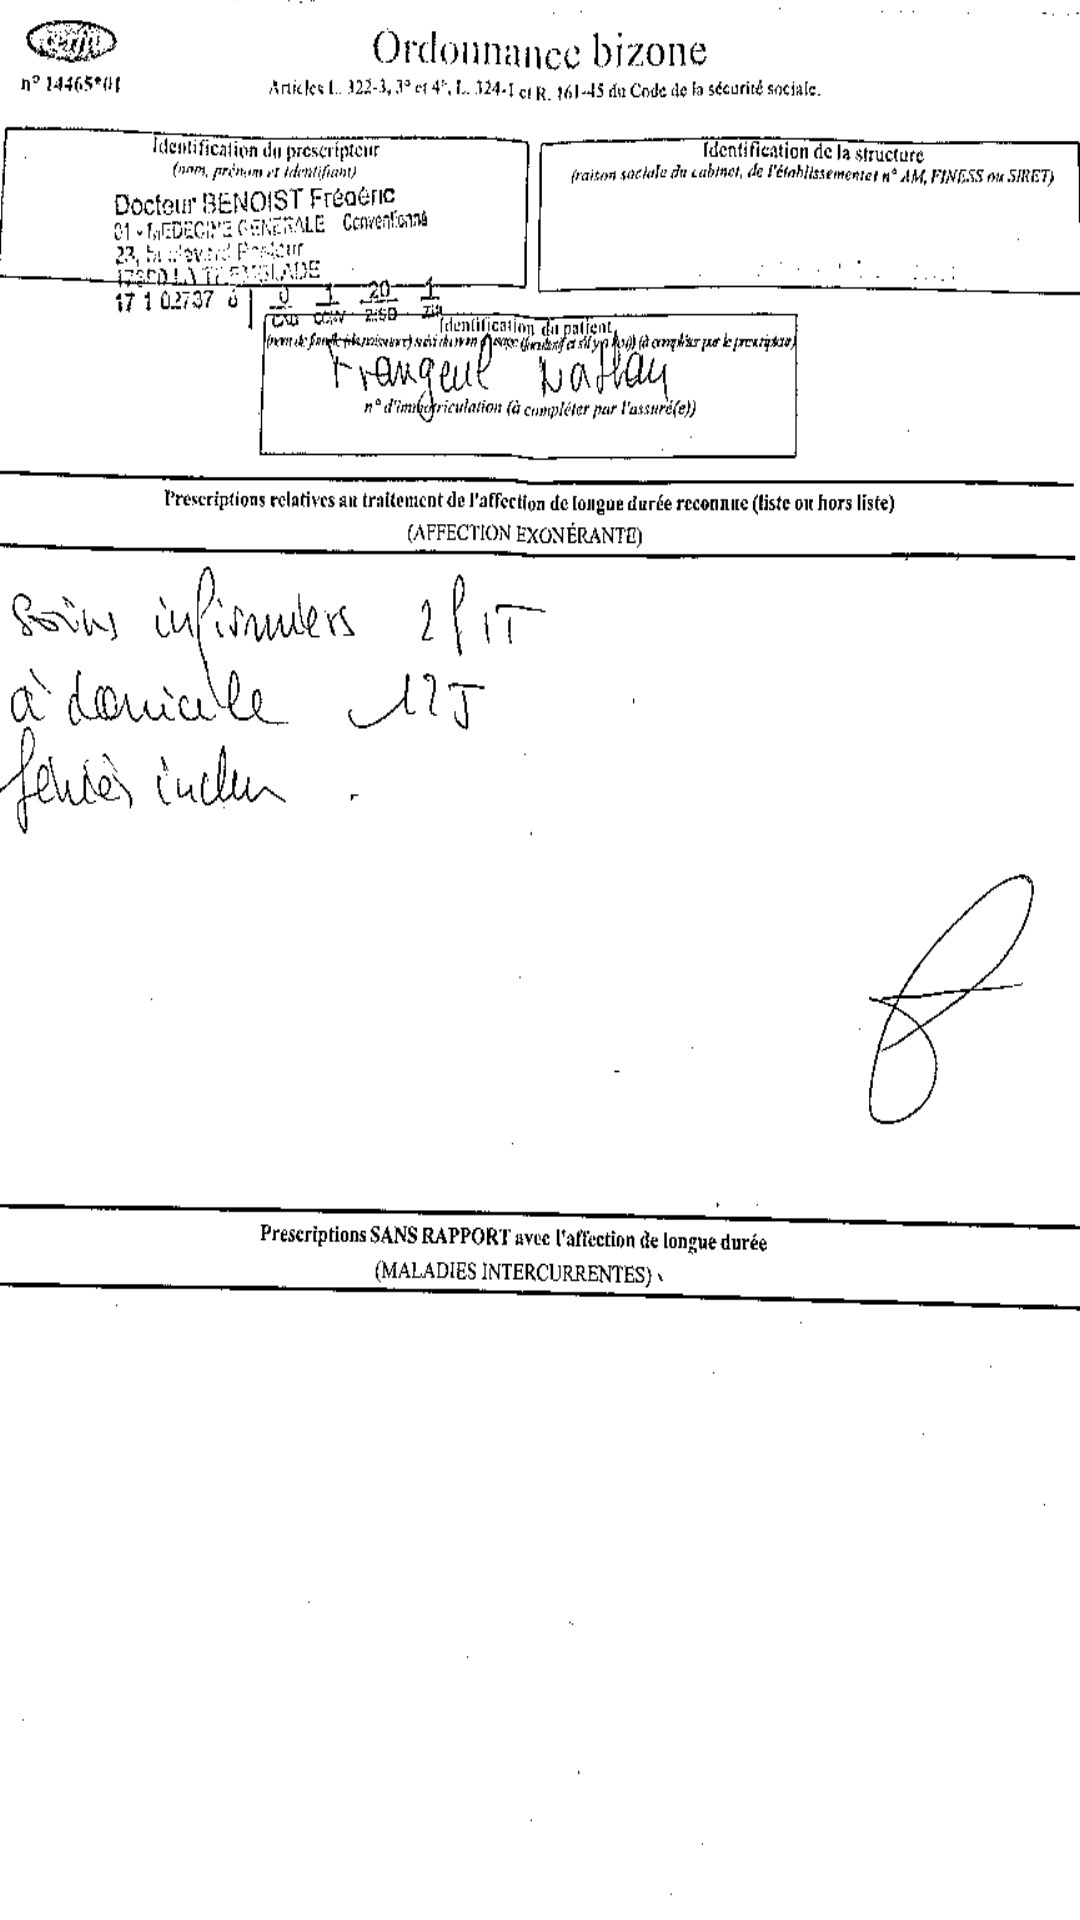 cerfa
n° 14465*01
Ordonnance bizone
Articles L. 322-3, 3° et 4°, L. 324-1 et R. 161-45 du Code de la sécurité sociale.
Identification du prescripteur
(nom, prénom et identifiant)
Docteur BENOIST Frédéric
01 - MEDECINE GENERALE Conventionné
23, boulevard Pasteur
LA TREMBLADE
17 1 02737 6 0 1 20 1
Identification de la structure
(raison sociale du cabinet, de l'établissement et n° AM, FINESS ou SIRET)
Identification du patient
(nom de famille (de naissance) suivi du nom d'usage (facultatif et s'il y a lieu)) (à compléter par le prescripteur)
Nathan
n° d'immatriculation (à compléter par l'assuré(e))
Prescriptions relatives au traitement de l'affection de longue durée reconnue (liste ou hors liste)
(AFFECTION EXONÉRANTE)
soins infirmiers 2f/J
à domicile 12J
fériés inclus
Prescriptions SANS RAPPORT avec l'affection de longue durée
(MALADIES INTERCURRENTES)